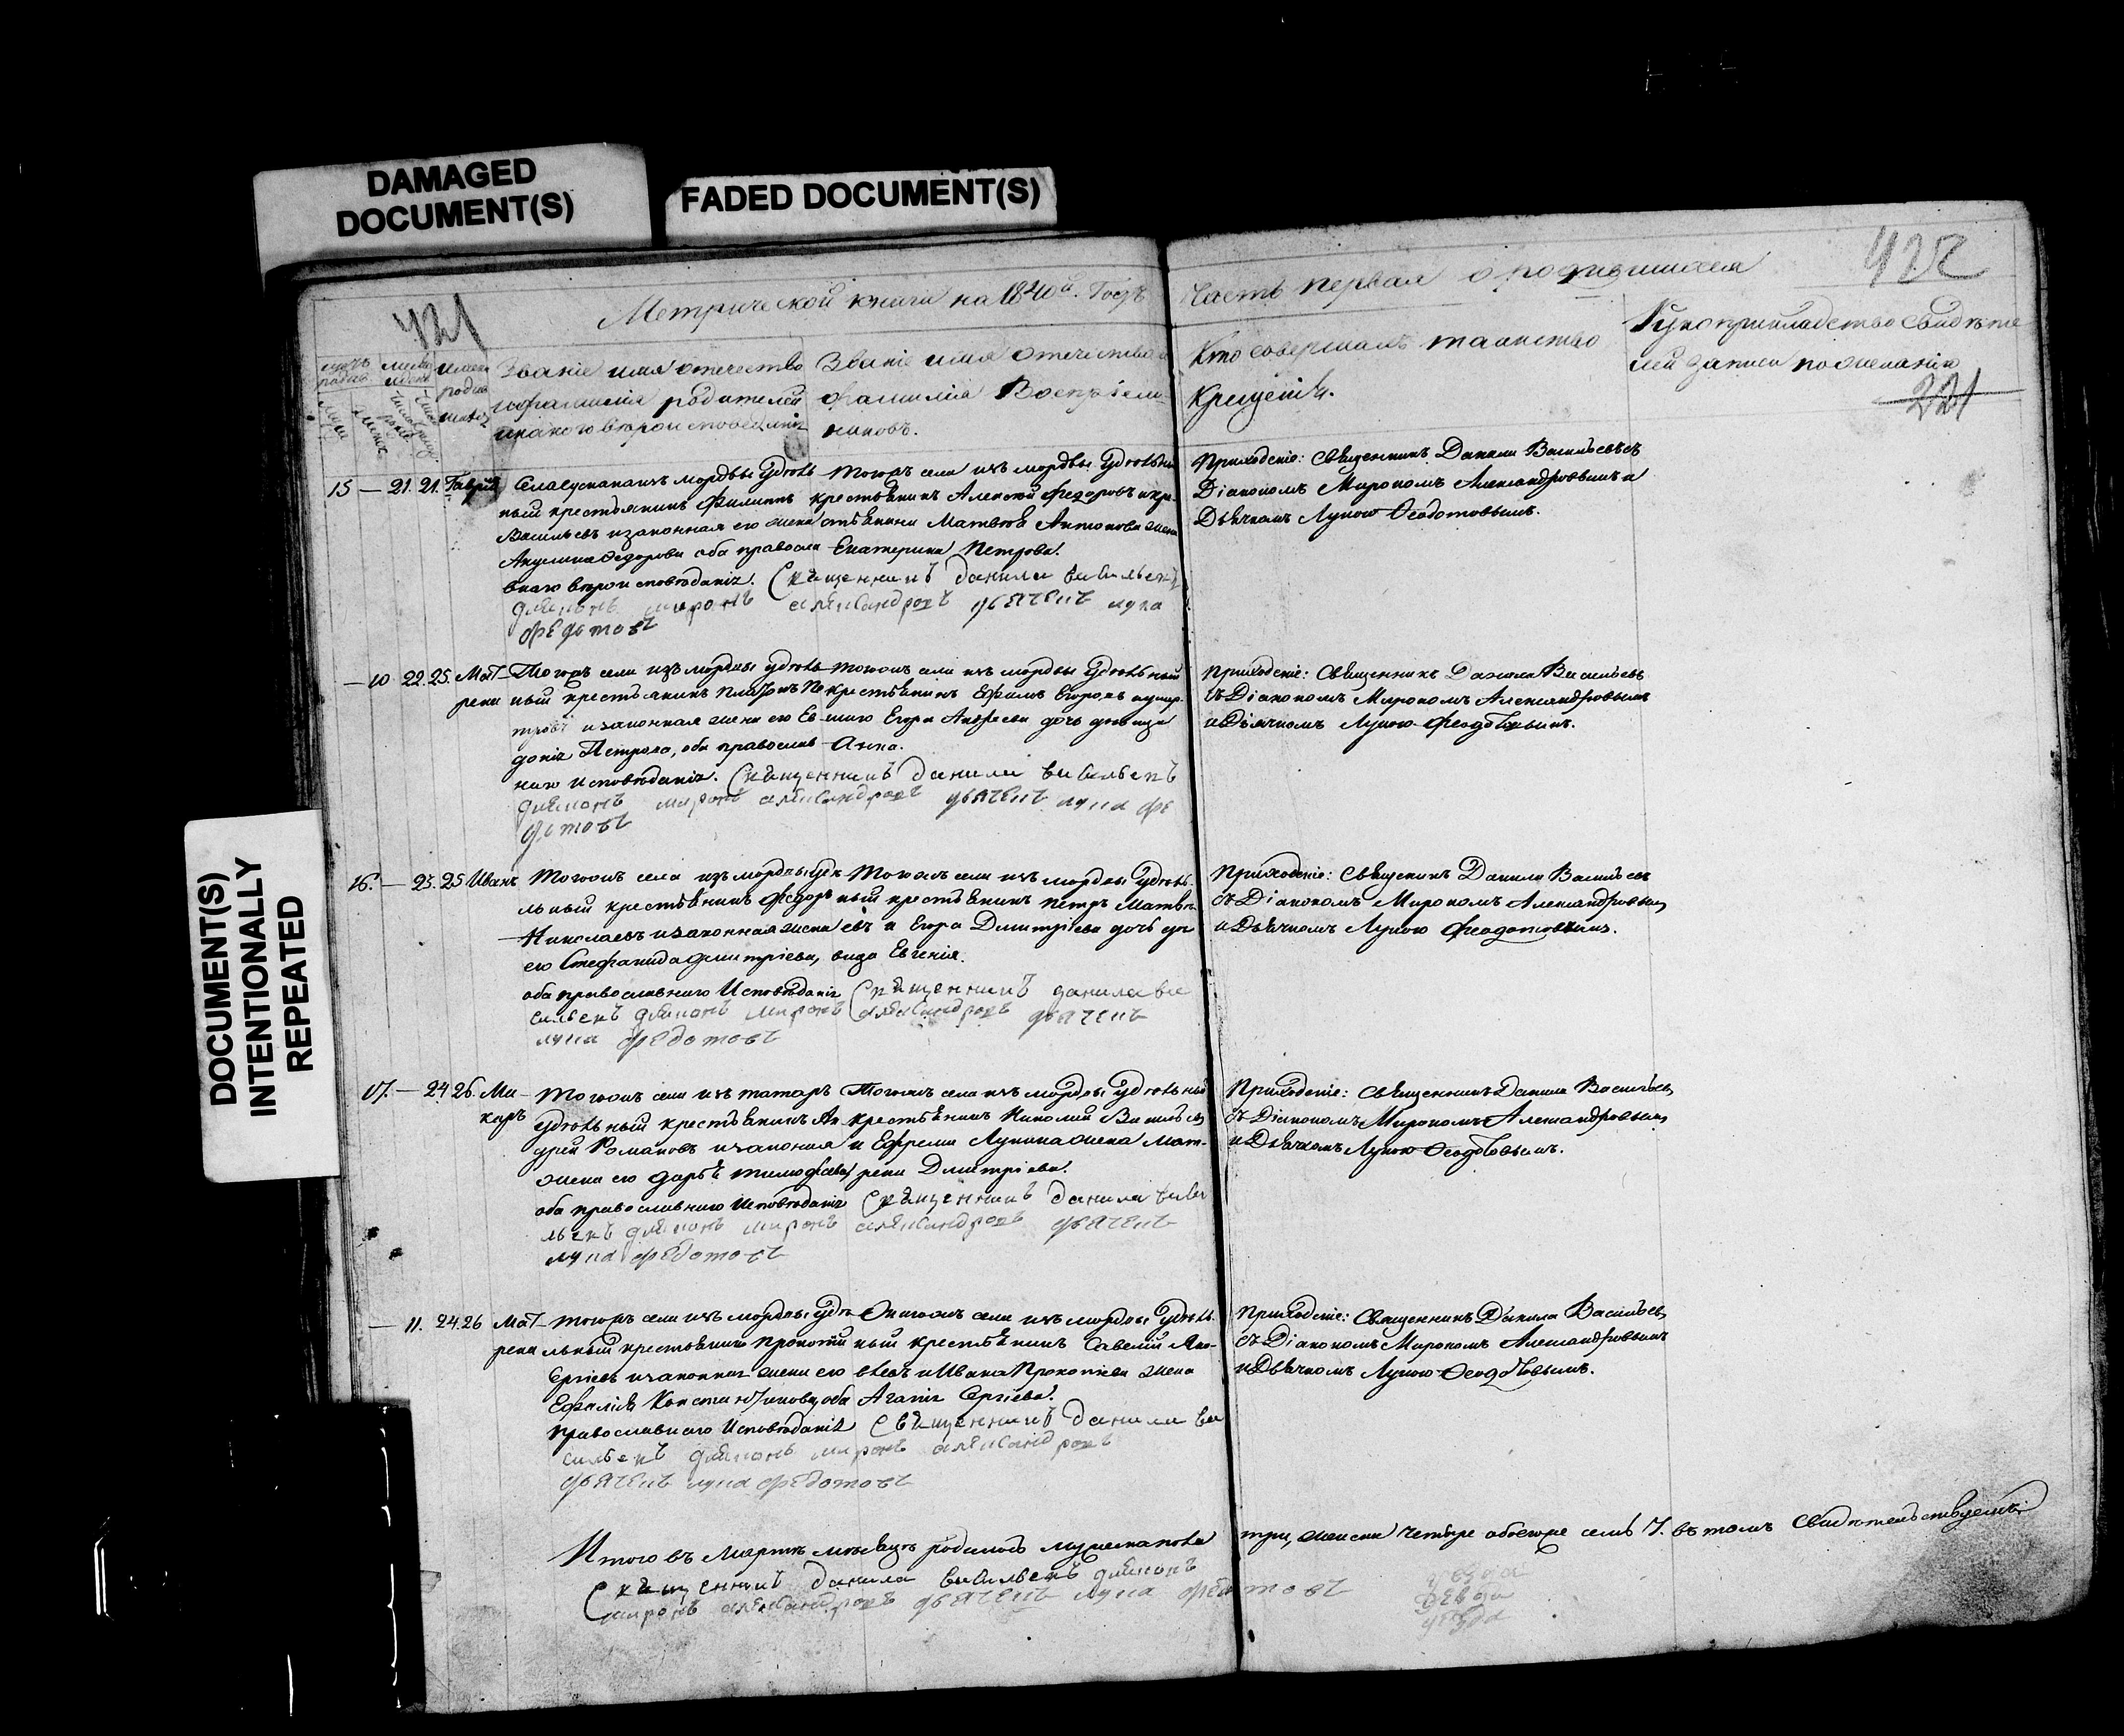 DAMAGED
DOCUMENT(S)
FADED DOCUMENT(S)
DOCUMENT(S)
INTENTIONALLY
REPEATED
421
Метрической книги на 1840й. Годъ
Часть первая о родившихся
422
Званіе имя отечество
родителей
Званіе имя отечество
фамилія Воспріем-
никовъ.
Кто совершалъ таинство
Крещенія.
Рукоприкладство свидѣте
лей записи по желанію
221
15 — 21. 21. Гаврiилъ
изъ мордвы Удѣль
ный крестьянинъ Филиппъ
Васильевъ и законная его жена
Акулина Ѳедорова оба правосла
внаго вѣроисповѣданія.
Тогожъ села изъ мордвы Удѣльный
крестьянинъ Алексей Федоровъ и кре-
стьянина Матвѣя Антонова жена
Екатерина Петрова.
Священникъ данила васильевъ
дияконъ миронъ александровъ дьячекъ лука
федотовъ
Приходскіе: Священникъ Данила Васильевъ съ
Діакономъ Мирономъ Александровымъ и
Дьячкомъ Лукою Ѳеодотовымъ.
— 10 22. 25. Мат-
рена
Тогожъ села изъ мордвы удѣль-
ный крестьянинъ Платонъ Пе
тровъ и законная жена его Ев-
докія Петрова, оба православ-
наго исповѣданія.
Тогожъ села изъ мордвы Удѣльный
крестьянинъ Ефимъ Егоровъ и умер-
шаго Егора Андреева дочь девица
Анна.
Священникъ данила васильевъ
дияконъ миронъ александровъ дьячекъ лука фе
дотовъ
Приходскіе: Священникъ Данила Васильевъ
съ Діакономъ Мирономъ Александровымъ
и Дьячкомъ Лукою Феодотовымъ.
16. — 23. 25 Иванъ
Тогожъ села изъ мордвы удѣ-
льный крестьянинъ Федоръ
Николаевъ и законная жена
его Стефанида Дмитріева,
оба православнаго Исповѣданія
Тогожъ села изъ мордвы Удѣль-
ный крестьянинъ Петръ Матвѣ-
евъ и Егора Дмитріева дочь де-
вица Евгенія.
Священникъ данила ва
сильевъ дияконъ миронъ александровъ дьячекъ
лука федотовъ
Приходскіе: Священникъ Данила Васильевъ
съ Діакономъ Мирономъ Александровым
и Дьячкомъ Лукою Феодотовымъ.
17. — 24. 26. Ма-
каръ
Тогожъ села изъ татаръ
Удѣльный крестьянинъ Ан-
дрей Романовъ и законная
жена его Дарья Тимофеева,
оба православнаго Исповѣданія
Тогожъ села изъ мордвы Удѣльный
крестьянинъ Николай Васильевъ
и Ефрема Лукина жена Мат-
рена Дмитріева.
Священникъ данила васи
льевъ дияконъ миронъ александровъ дьячекъ
лука федотовъ
Приходскіе: Священникъ Данила Васильевъ
съ Діакономъ Мирономъ Александровым
и Дьячкомъ Лукою Ѳеодотовымъ.
— 11. 24. 26 Мат-
рена
Тогожъ села изъ мордвы удѣ-
льный крестьянинъ Прокопій
Сергіевъ и законная жена его
Константинова оба
православнаго Исповѣданія
села изъ мордвы Удѣль-
ный крестьянинъ Савелий Яко-
влевъ и Ивана Прокопіева жена
Агапія Сергіева.
Священникъ данила ва
сильевъ дияконъ миронъ александровъ
дьячекъ лука федотовъ
Приходскіе: Священникъ Данила Васильевъ
съ Діакономъ Мирономъ Александровымъ
и Дьячкомъ Лукою Ѳеодотовымъ.
Итого въ Мартѣ мѣсяцѣ родилось мужеска пола три, женска четыре обоего семь 7. въ томъ Свидѣтельствуемъ:
Священникъ данила васильевъ дияконъ
миронъ александровъ дьячекъ лука федотовъ